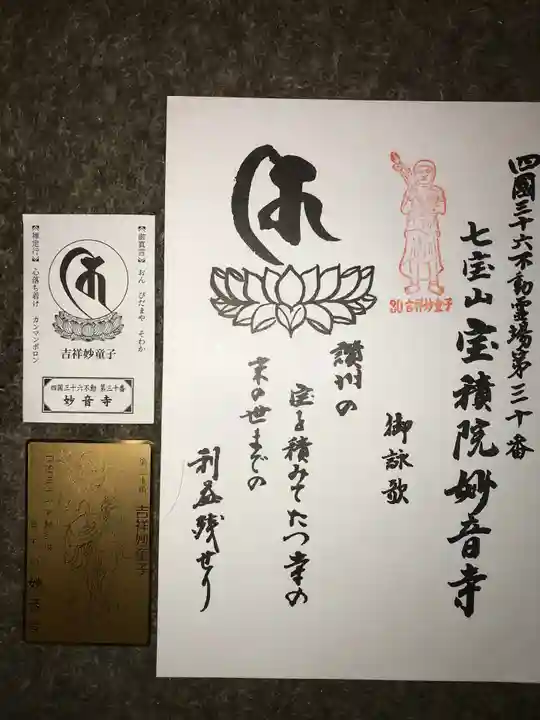 四國三十六不動霊場第三十番
七宝山宝積院妙音寺
30吉祥妙童子
御詠歌
讃州の
宝を積みてたつ寺の
末の世までの
利益残せり
【御真言】おん びだまや そわか
【禅定行】心落ち着け カンマンボロン
吉祥妙童子
四国三十六不動 第三十番
妙音寺
吉祥妙童子
妙音寺